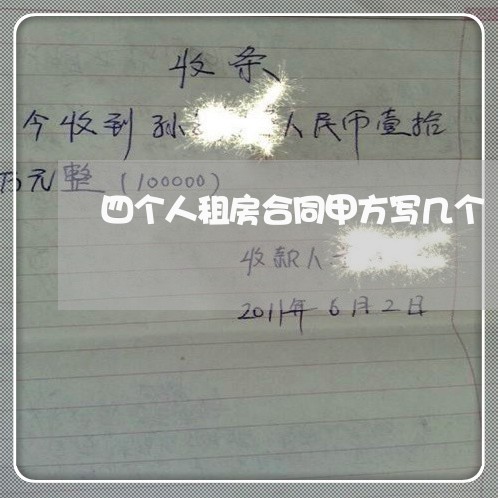 收条
今收到孙 人民币壹拾
万元整（100000）
四个人租房合同甲方写几个
收款人
2011年6月2日